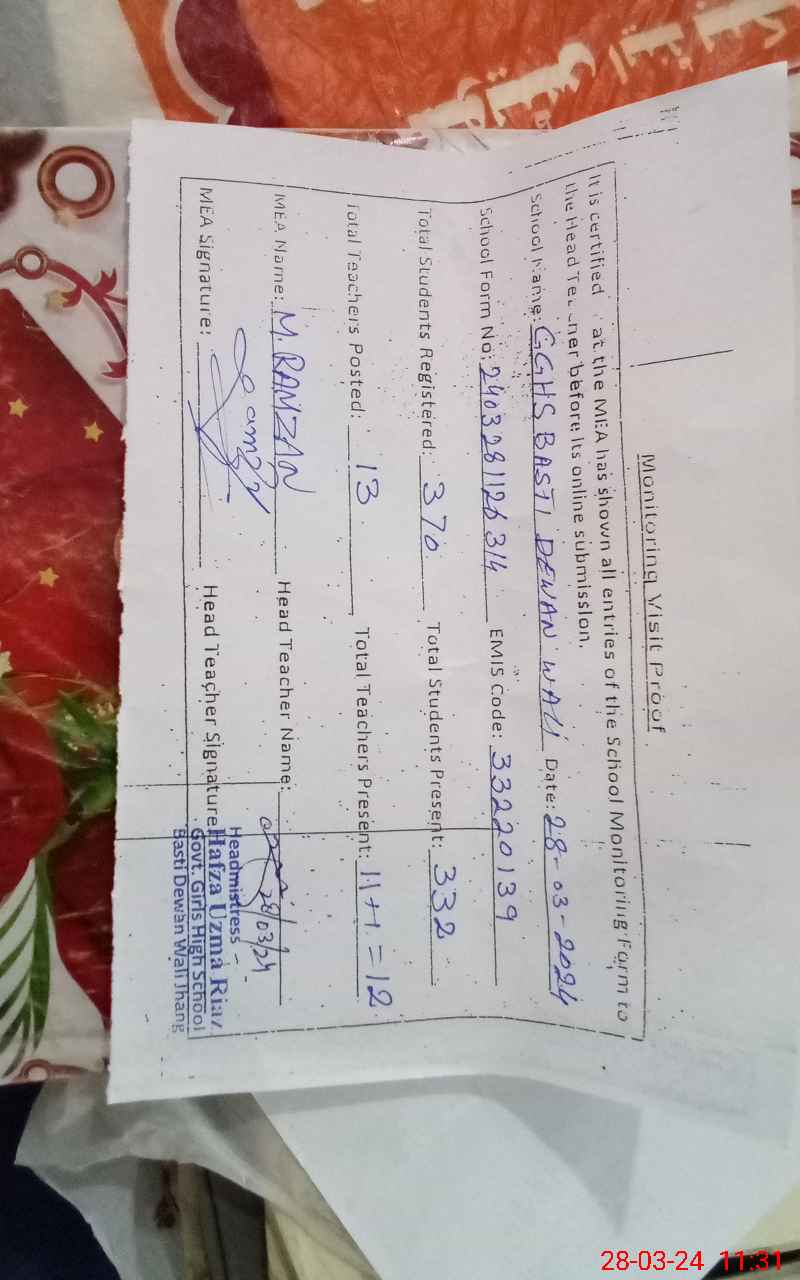 Monitoring Visit Proof
It is certified at the MEA has shown all entries of the School Monitoring Form to
the Head Teacher before its online submission.
School Name: GGHS BASTI DEWAN WALI Date: 28-03-2024
School Form No: EMIS Code: 33220139
Total Students Registered: 370 Total Students Present: 332
Total Teachers Posted: 13 Total Teachers Present: 11+1=12
MEA Name: M. RAMZAN Head Teacher Name:
MEA Signature: Head Teacher Signature
28/03/24
Headmistress
Hafza Uzma Riaz
Govt. Girls High School
Basti Dewan Wali Jhang
28-03-24 11:31